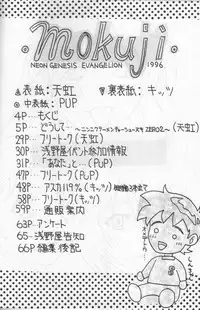 mokuji
NEON GENESIS EVANGELION 1996.
▲表紙:天虹 ♥裏表紙:キッツ
◎中表紙:PUP
4P…もくじ
5P…どうして… 〜ニンニクラーメンチャーシューヌキ ZERO2〜(天虹)
29P…フリートーク(天虹)
30P…浅野屋イベント参加情報
31P…「あなた」と…(PUP)
47P…フリートーク(PUP)
48P…アスカ119%(キッツ)
58P…フリートーク(キッツ)
59P…通販案内
63P…アンケート
65…浅野屋告知
66P…編集後記